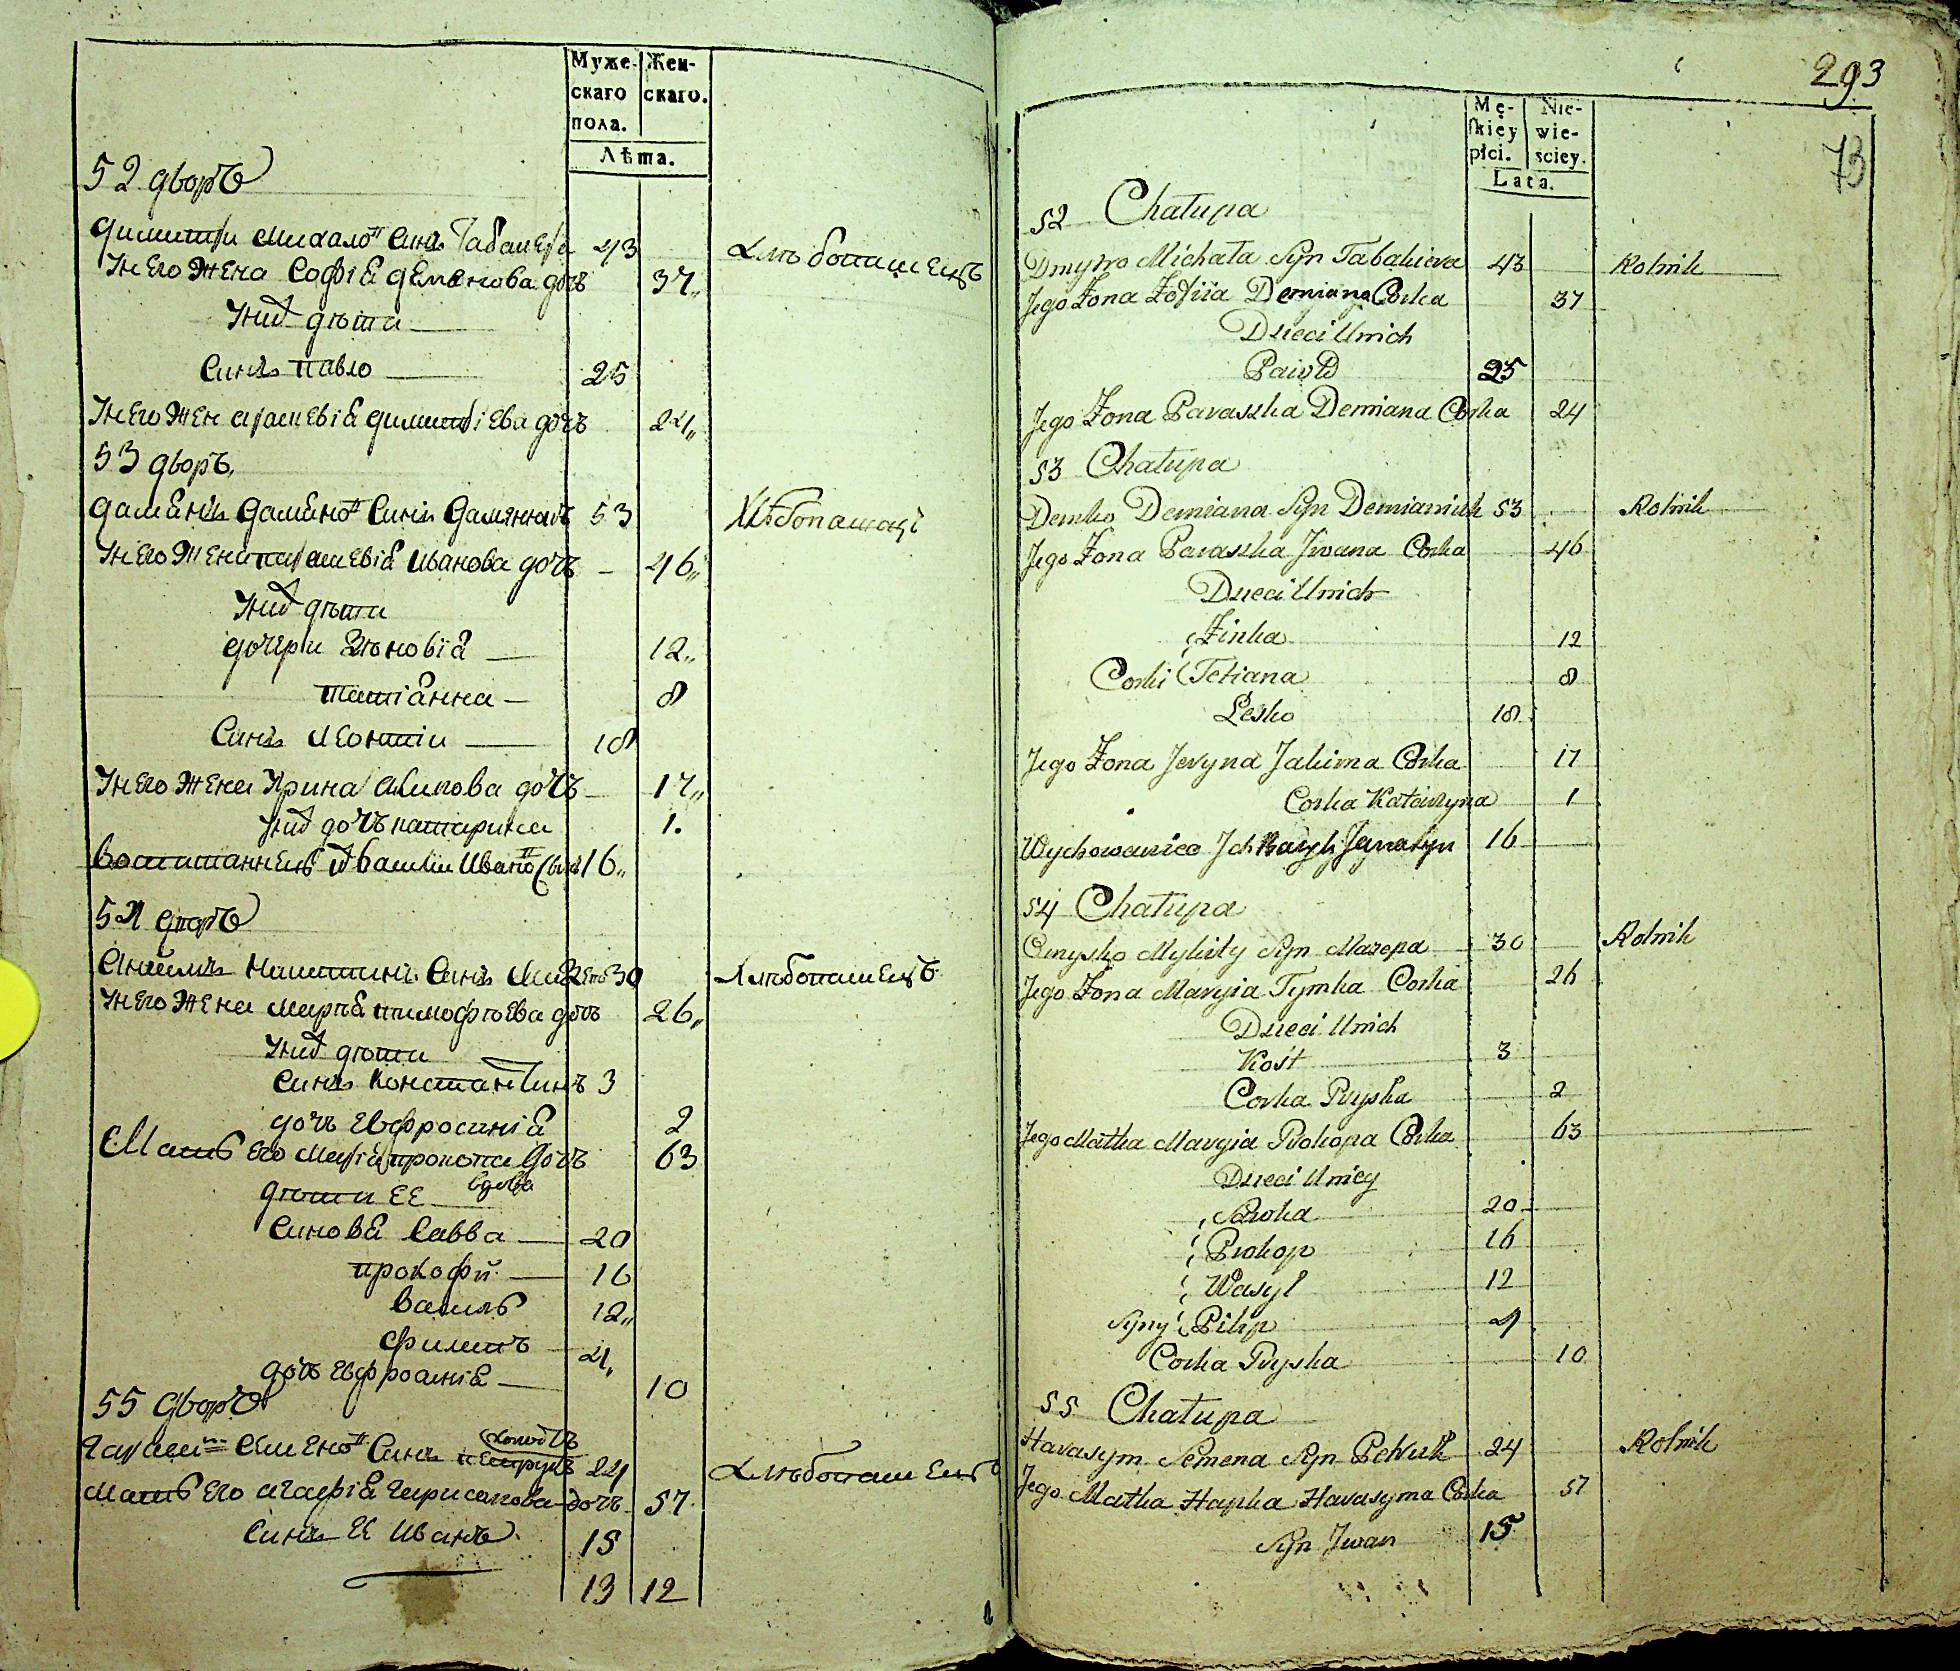 Муже- Жен-
скаго скаго.
пола.
Лѣта.
52 дворъ
Димитри Михало Синъ Табакера 43 хлѣбопашецъ
У него жена Софіѣ демянова дочъ 37
У них дѣти
Синъ павло 25
У него жен прасковіѣ димитріева дочъ 24
53 дворъ
Дамѣнъ Дамѣно Синъ Дамянчукъ 53 Хлѣбопашецъ
У него жена параскевіѣ иванова дочъ 46
У них дѣти
дочери Зѣновіѣ 12
татіѣнна 8
Синъ леонтіи 18
У него жена Ирина акимова дочъ 17
у них дочъ катарина 1.
воспитаннецъ их васили Ивано 16
54 дворъ
никитинъ Синъ 30 хлѣбопашецъ
У него жена маріѣ тимофѣева дочъ 26
У них дѣти
Синъ Константинъ 3
дочъ Евфросиніѣ 2
Мать его маріѣ прокопа дочъ 63
вдова
дѣти ее
Синовѣ Савва 20
прокофій 16
василь 12
филипъ 4
дочъ евфросиніѣ 10
55 дворъ
холостъ
Гарасим Семено Синъ петрукъ 24 хлѣбопашецъ
Мать его агафіѣ герасимова дочъ 57
Синъ ее Иванъ 15
13 12
293
73
Mę- Nie-
skiey wie-
płci. sciey.
Lata.
52 Chałupa
Dmytro Michała Syn Tabakiera 43 Rolnik
Jego Żona Zofiia Demiana Corka 37
Dzieci Unich
Pawło 25
Jego Żona Paraszka Demiana Corka 24
53 Chałupa
Demko Demiana Syn Demianiuk 53 Rolnik
Jego Żona Paraszka Jwana Corka 46
Dzieci Unich
Zinka 12
Corki Tetiana 8
Lesko 18
Jego Żona Jeryna Jakima Corka 17
Corka Katarzyna 1
Wychowaniec Jch Wasyl 16
54 Chałupa
Onysko Mykity Syn Mazepa 30 Rolnik
Jego Żona Maryia Tymka Corka 26
Dzieci Unich
Kośt 3
Corka Pryska 2
Jego Matka Maryia Prokopa Corka 63
Dzieci Uniey
Sawka 20
Prokop 16
Wasyl 12
Syny Pilip 4
Corka Pryska 10
55 Chałupa
Harasym Semena Syn Petruk 24 Rolnik
Jego Matka Hapka Harasyma Corka 57
Syn Jwan 15